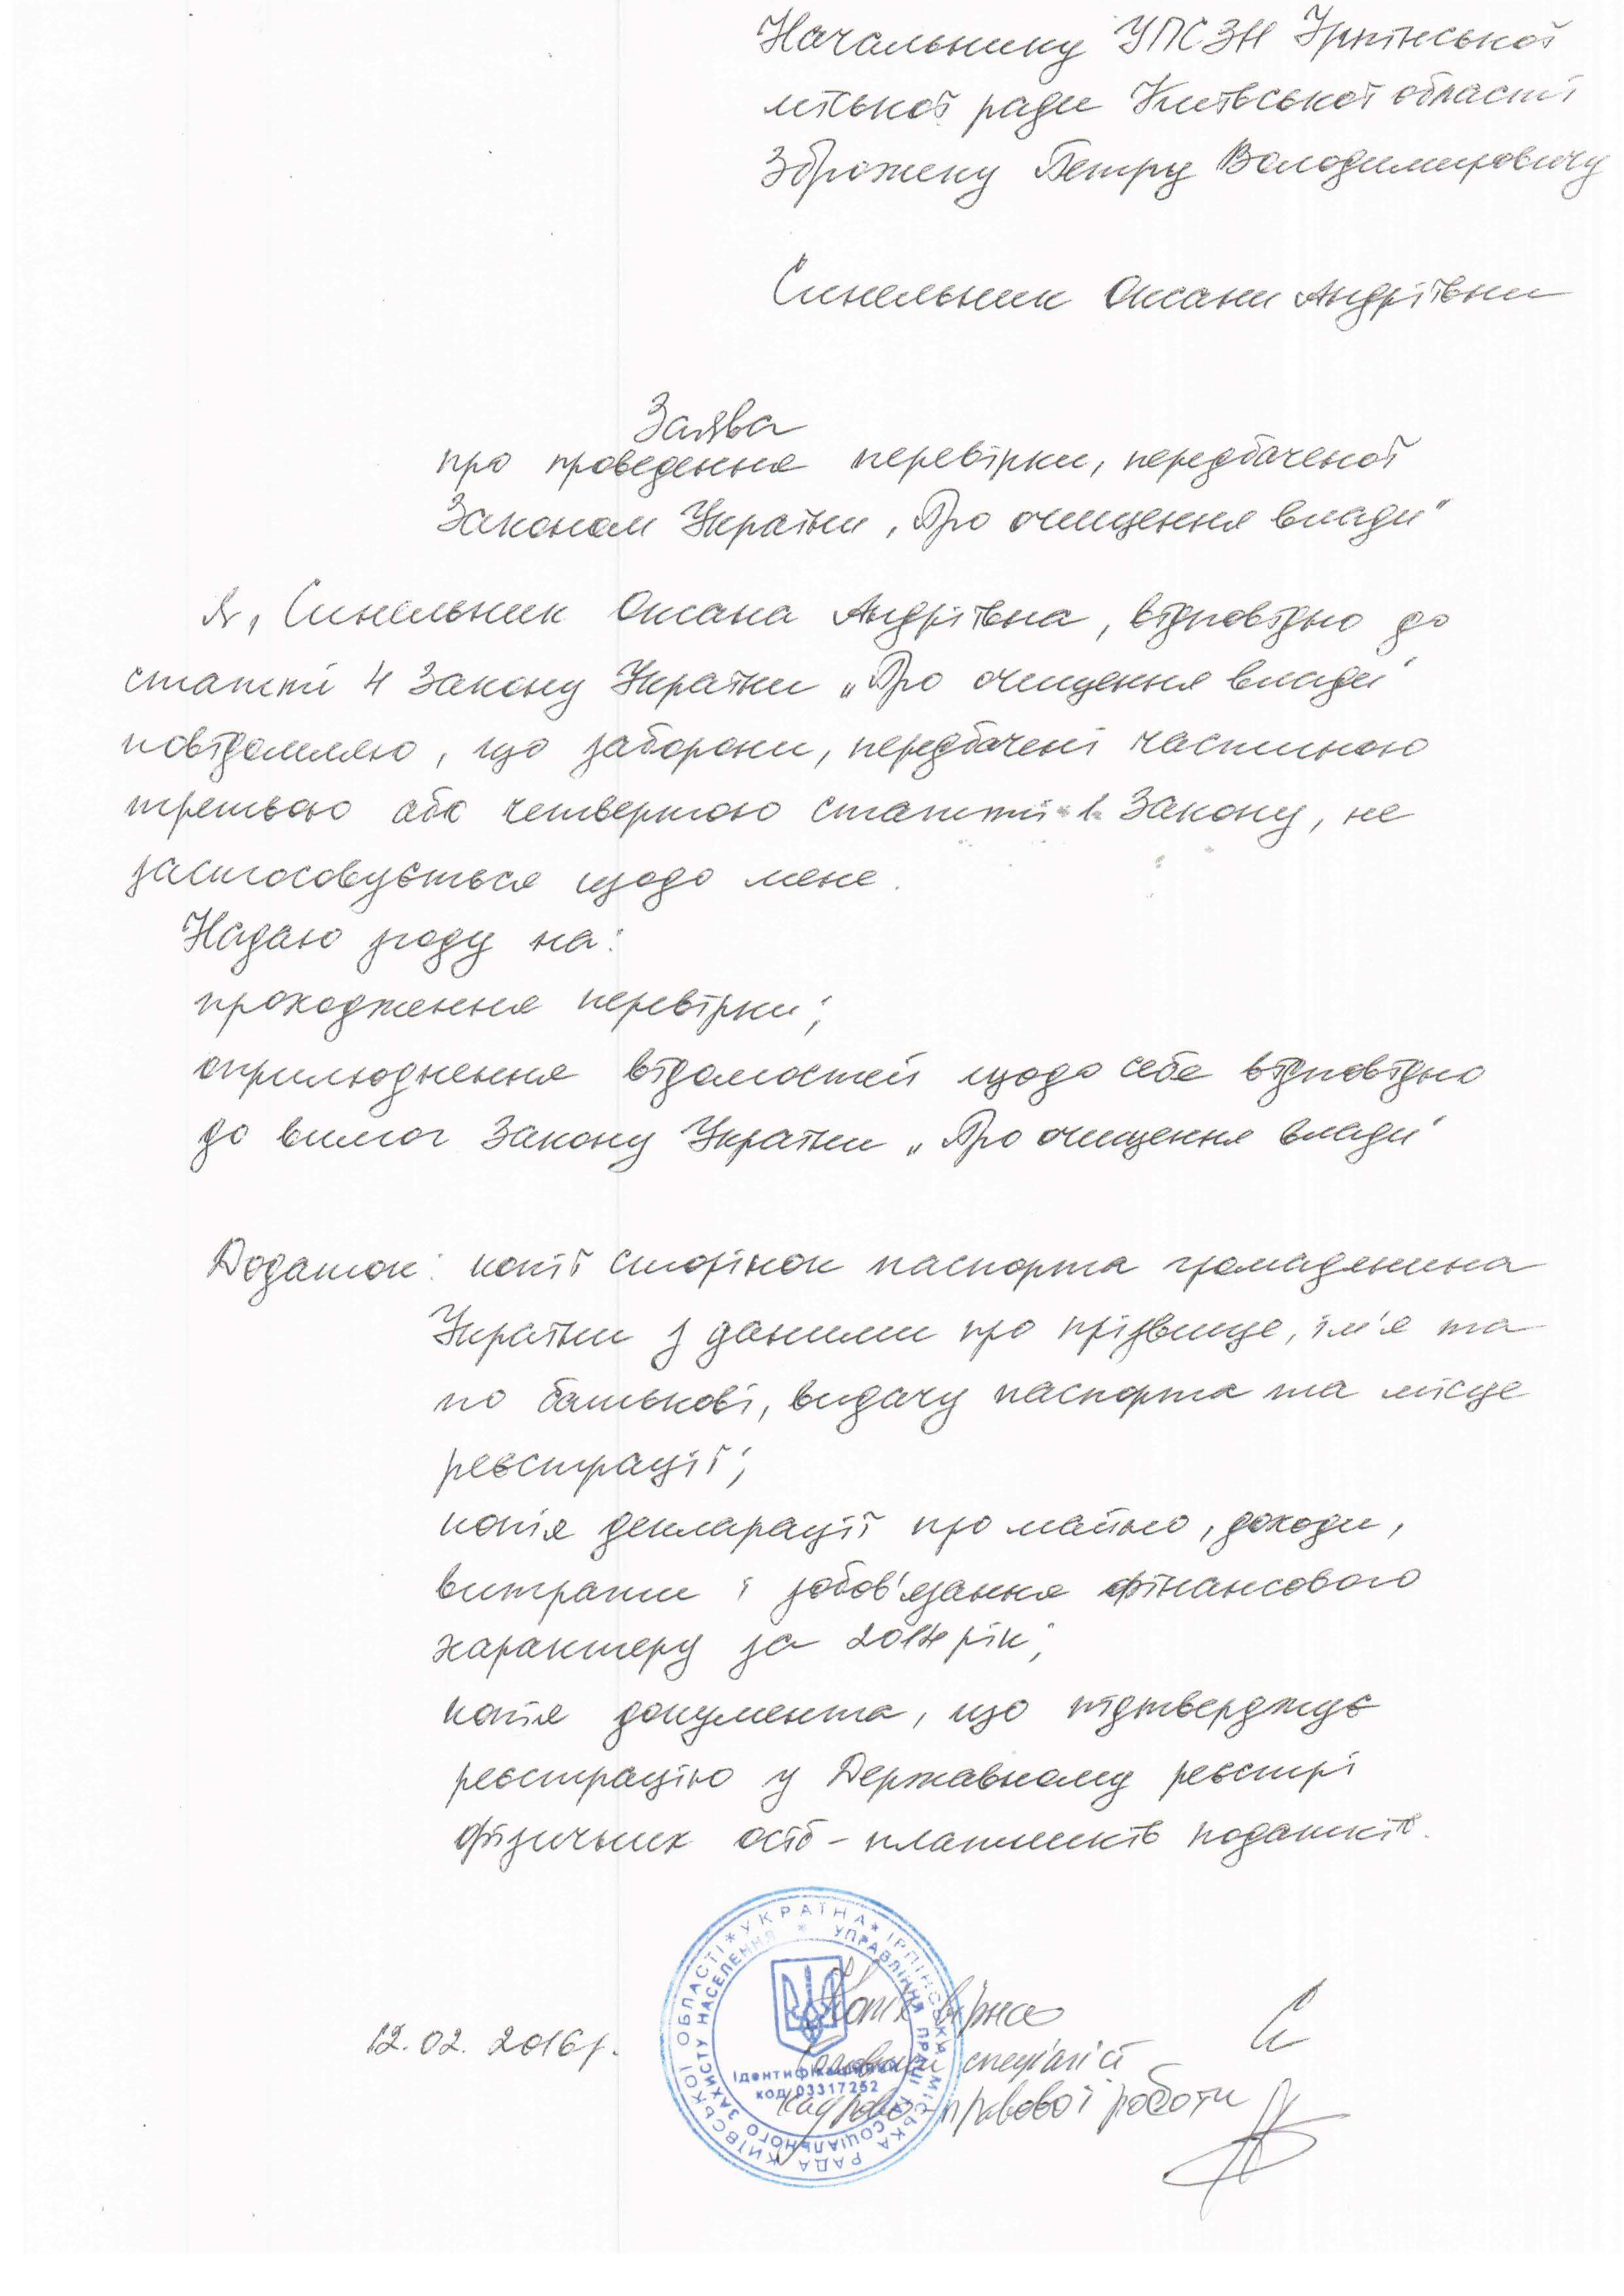 Начальнику УПСЗН Ірпінської
міської ради Київської області
Зброжеку Петру Володимировичу
Синельник Оксани Андріївни
Заява
про проведення перевірки, передбаченої
Законом України „Про очищення влади"
Я, Синельник Оксана Андріївна, відповідно до
статті 4 Закону України „Про очищення влади"
повідомляю, що заборони, передбачені частиною
третьою або четвертою статті 1 Закону, не
застосовується щодо мене.
Надаю згоду на:
проходження перевірки;
оприлюднення відомостей щодо себе відповідно
до вимог Закону України „Про очищення влади"
Додаток: копії сторінок паспорта громадянина
України з даними про прізвище, ім'я та
по батькові, видачу паспорта та місце
реєстрації;
копія декларації про майно, доходи,
витрати і зобов'язання фінансового
характеру за 2014 рік;
копія документа, що підтверджує
реєстрацію у Державному реєстрі
фізичних осіб - платників податків.
12.02.2016р.
* УКРАЇНА * ІРПІНСЬКА МІСЬКА РАДА КИЇВСЬКОЇ ОБЛАСТІ
* УПРАВЛІННЯ ПРАЦІ ТА СОЦІАЛЬНОГО ЗАХИСТУ НАСЕЛЕННЯ
Ідентифікаційний
код 03317252
Копія вірна
Головний спеціаліст
кадрово-правової роботи